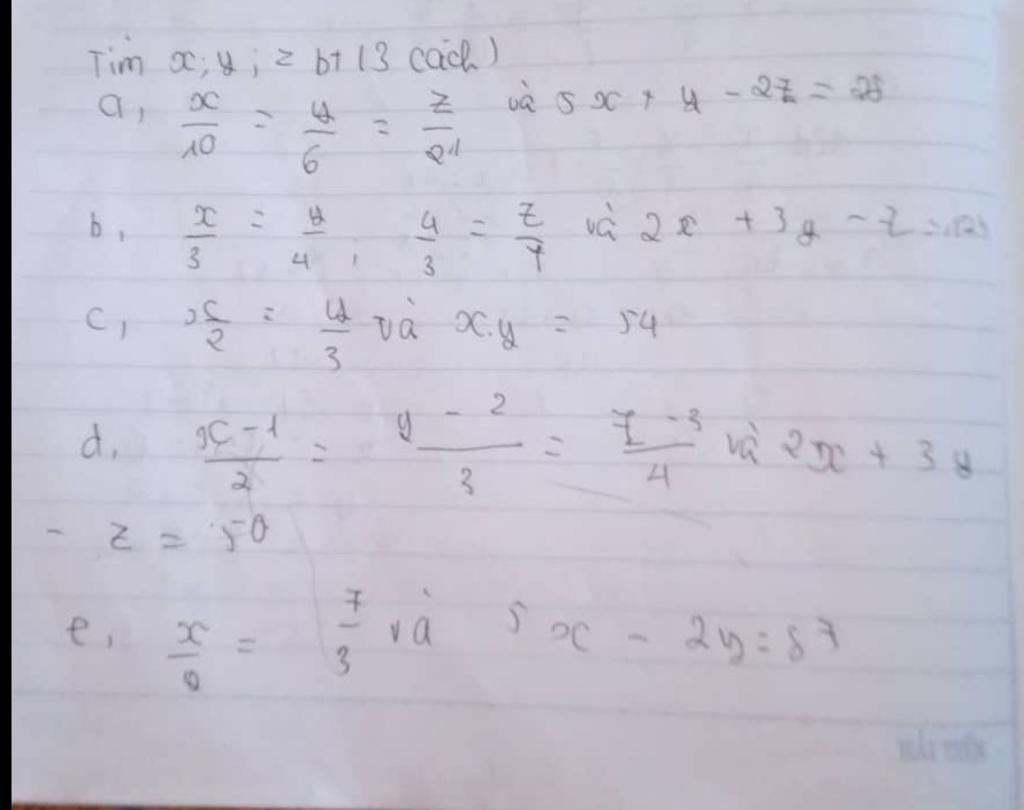 Tìm x; y; z bt (3 cách)
a, x/10 = y/6 = z/21 và 5x + y - 2z = 28
b, x/3 = y/4, y/3 = z/7 và 2x + 3y - z =
c, x/2 = y/3 và x.y = 54
d, x-1/2 = y-2/3 = z-3/4 và 2x + 3y
- z = 50
e, x/ = 7/3 và 5x - 2y = 87